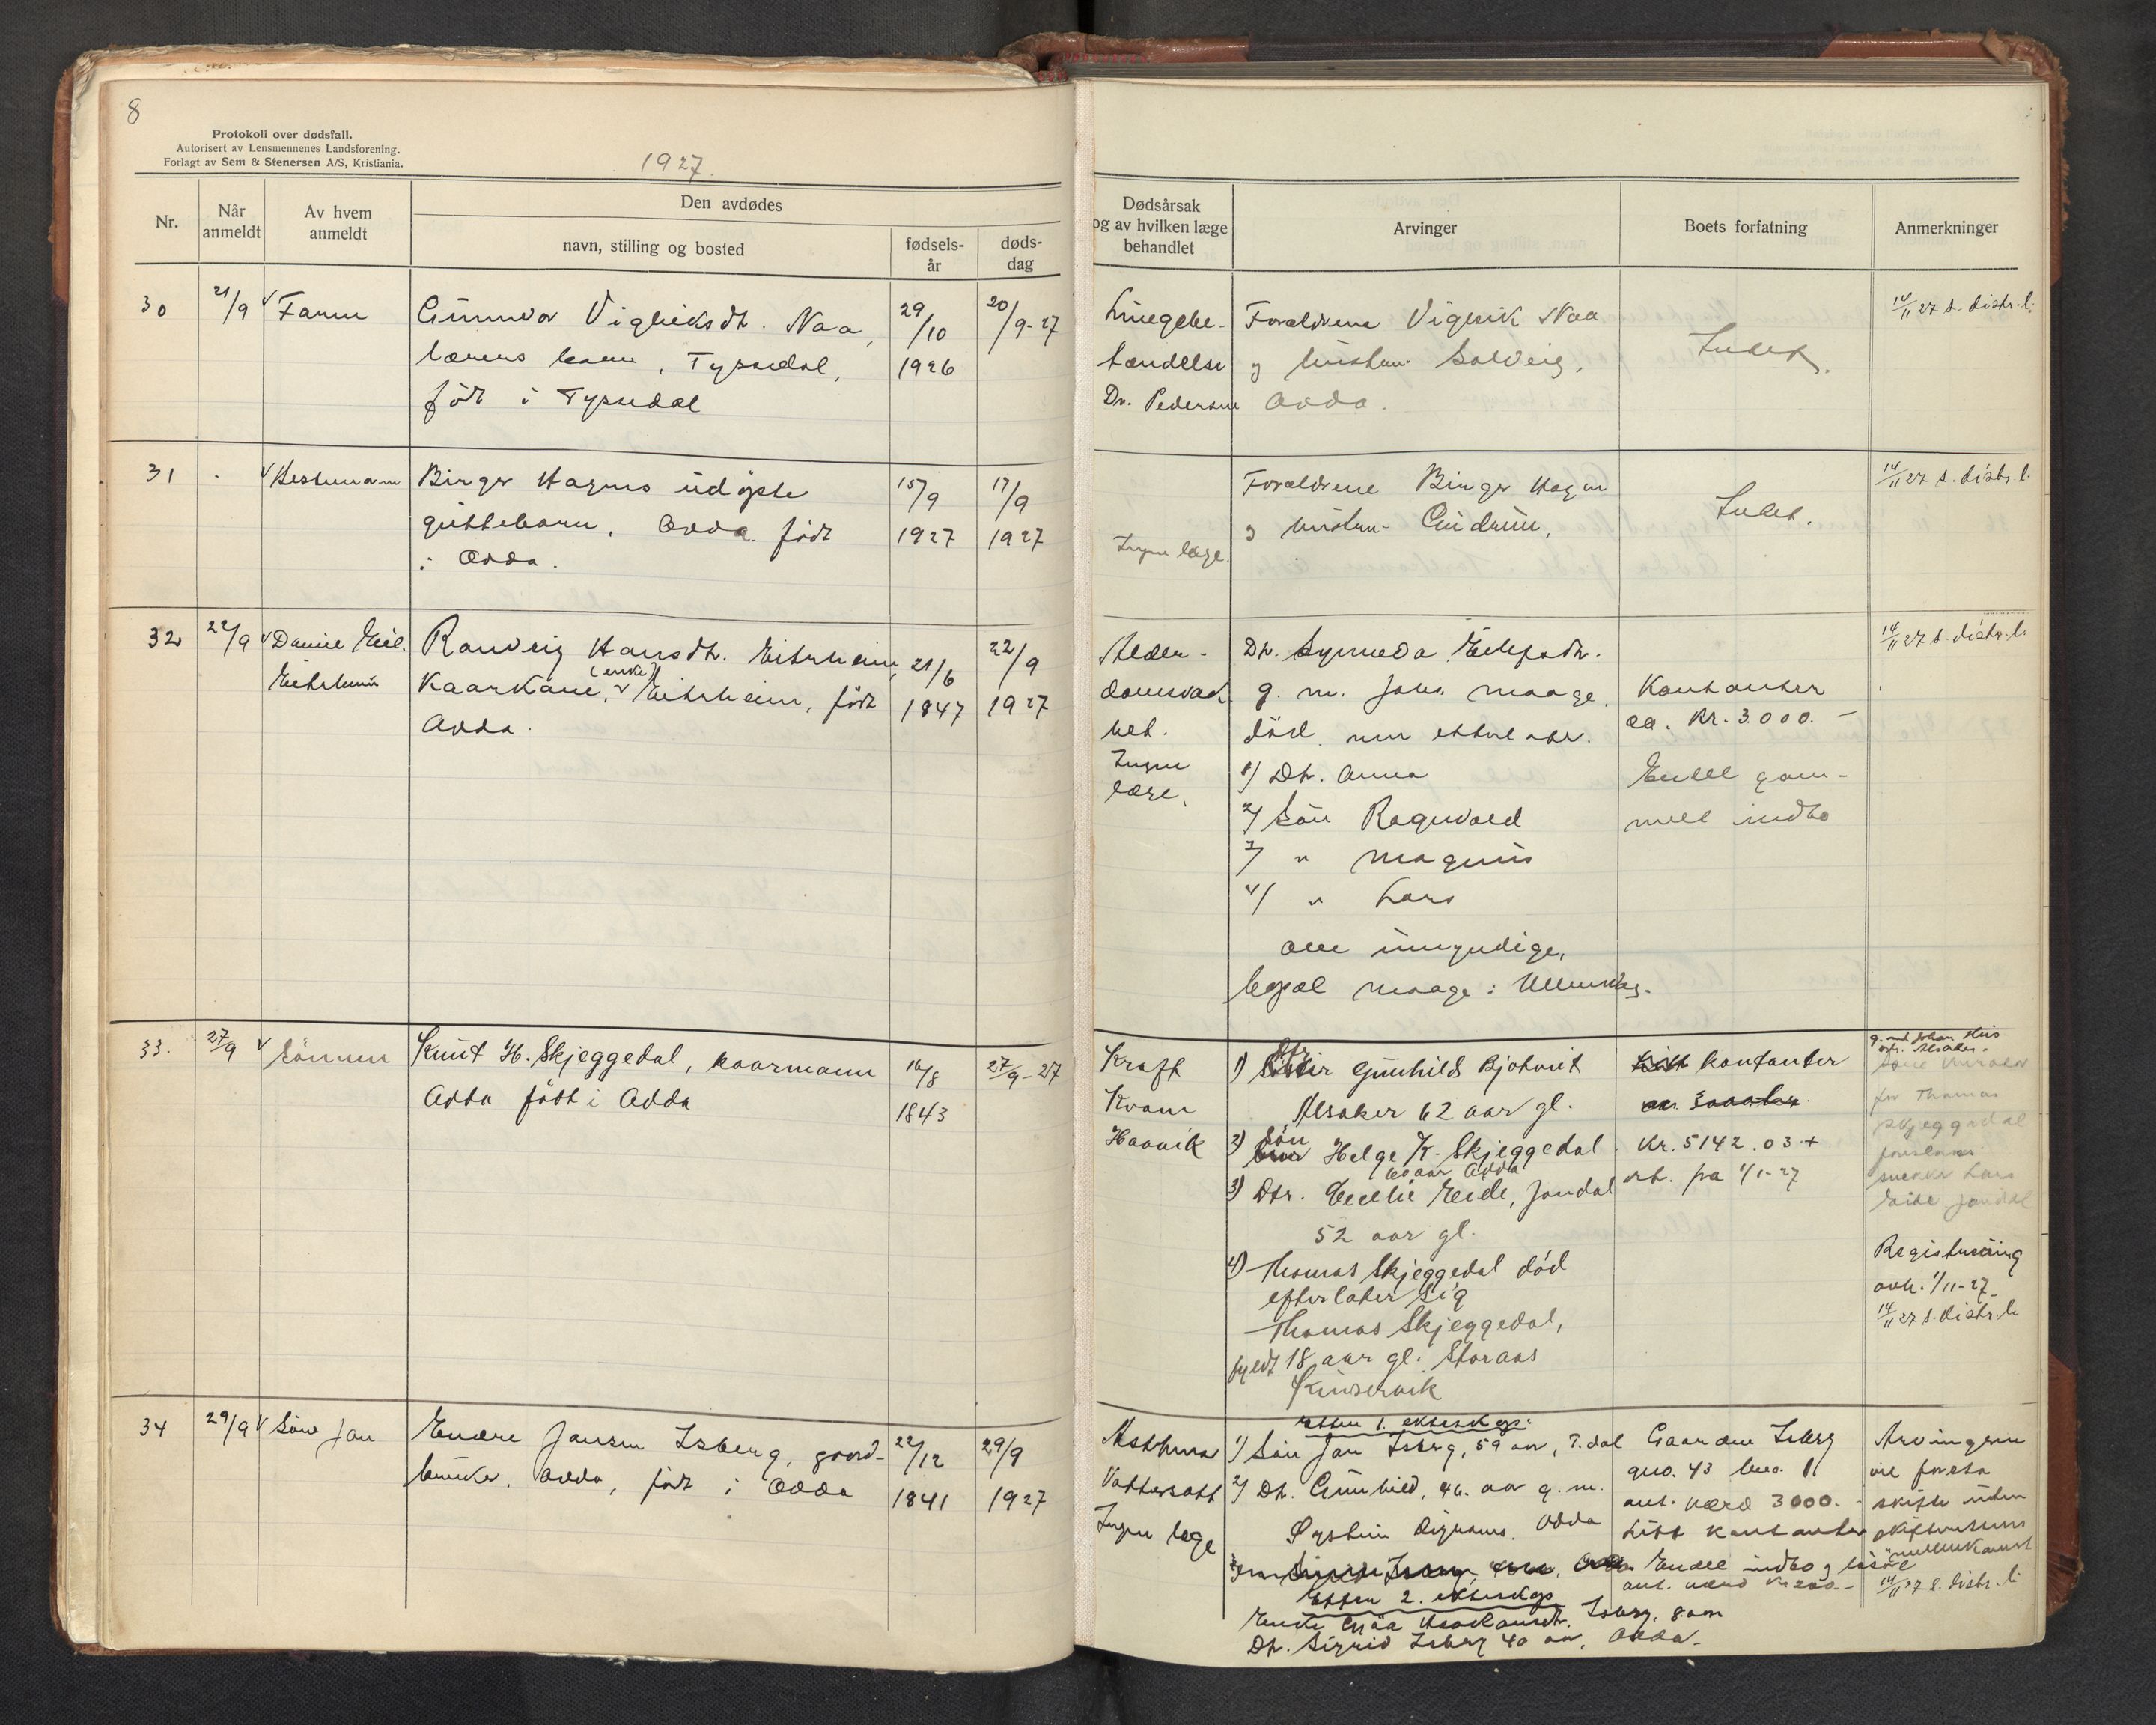 8
Protokoll over dødsfall.
Autorisert av Lensmennenes Landsforening.
Forlagt av Sem & Stenersen A/S, Kristiania.
1927.
Nr.
Når anmeldt
Av hvem anmeldt
Den avdødes
navn, stilling og bosted
fødsels-
år
døds-
dag
Dødsårsak
og av hvilken læge
behandlet
Arvinger
Boets forfatning
Anmerkninger
30 21/9 Faren
Gunnvor Vigleiksdt. Naa,
barn, Tyssedal,
født i Tyssedal
29/10
1926
20/9-27
Lungebe-
tændelse
Dr. Pedersen
Forældrene Vigleik Naa
og hustru Solveig,
Odda.
Intet.
14/11 27 s. distr.l.
31
Birger Hagens udøpte
guttebarn, Odda født
i Odda.
15/9
1927
17/9
1927
Ingen læge.
Forældrene Birger Hagen
og hustru Gudrun,
Intet.
14/11 27 s. distr.l.
32 22/9 Daniel
Eitrheim
Ranveig Hansdt. Eitrheim,
(enke)
Kaarkone, Eitrheim, født
Odda.
21/6
1847
22/9
1927
Alder-
domsvak-
het.
Ingen
læge.
Dt. Synneva
g. m. Johs. Maage,
død men efterlater.
1) Dt. Anna
2) Søn Ragnvald
3) " Magnus
4) " Lars
alle umyndige,
bopæl Maage i Ullensvang.
Kontanter
ca. Kr. 3000.-
Endel gam-
mell indbo
14/11 27 s. distr.l.
33. 27/9 Sønnen
Knut H. Skjeggedal, kaarmann
Odda født i Odda
16/8
1843
27/9-27
Kræft
Kvam
Haavik
1) Dtr. Gunhild Bjotveit
Alsaker 62 aar gl.
2) Søn Helge K. Skjeggedal
60 aar Odda
3) Dtr. Cecelie Eide, Jondal
52 aar gl.
4) Thomas Skjeggedal død
efterlater sig
Thomas Skjeggedal,
fyldt 18 aar gl. Storaas
Kinservik
Kontanter
Kr. 5142.03 +
rt. fra 1/1-27
for Thomas
Skjeggedal
Lars
Eide Jondal
Registrering
avh. 1/11-27
14/11 27 s. distr.l.
34 29/9 Søn Jan
Endre Jansen Isberg, gaard-
bruker, Odda, født i Odda
22/12
1841
29/9
1927
Asthma
Vattersott
Ingen læge
Efter 1. ekteskap:
1) Søn Jan Isberg, 59 aar, T.dal
2) Dt. Gunhild, 46. aar g. m.
Øystein Odda
Efter 2. ekteskap
Enke Isberg, 8 aar
Dt. Sigrid Isberg 40 aar, Odda.
Gaarden Isberg
gno. 43 bno. 11
ant. værd 3000.-
Litt kontanter
Endel indbo og løsøre
ant. værd Kr 200.-
Arvingerne
vil foreta
skifte uten
skifterettens
mellemkomst
14/11 27 s. distr.l.